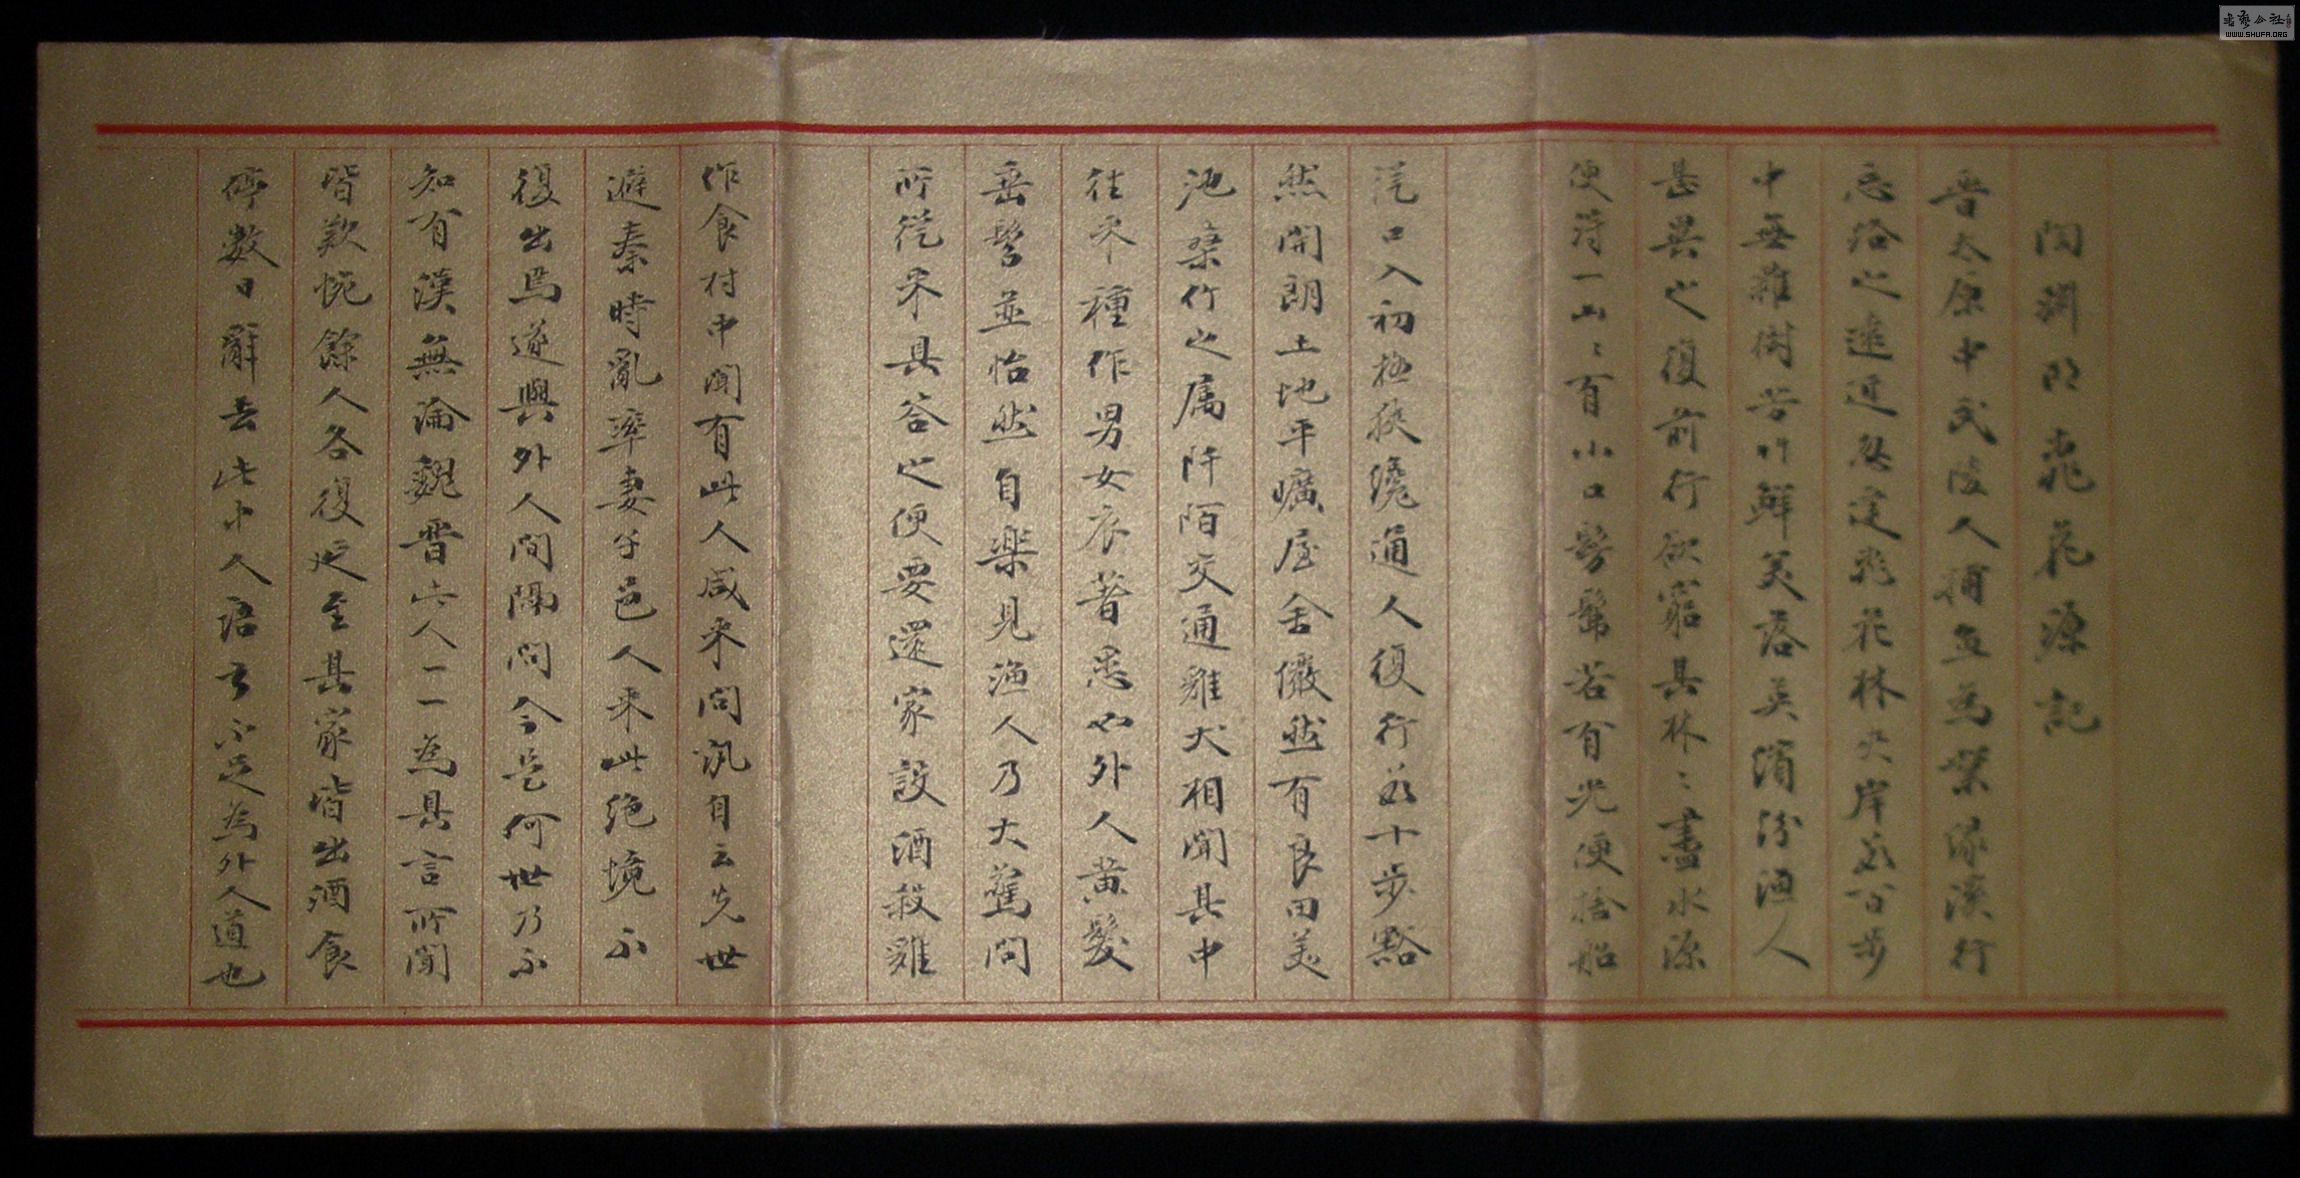 陶渊明桃花源记
晋太原中武陵人捕鱼為業缘溪行
忘路之遠近忽逢桃花林夹岸數百步
中無雜樹芳草鮮美落英缤纷渔人
甚異之復前行欲窮其林〻盡水源
便得一山〻有小口髣髴若有光便捨船
從口入初極狹纔通人復行數十步豁
然開朗土地平曠屋舍儼然有良田美
池桑竹之属阡陌交通雞犬相聞其中
往来種作男女衣著悉如外人黄髮
垂髫並怡然自樂見渔人乃大驚問
所從来具答之便要還家設酒殺雞
作食村中聞有此人咸来問訊自云先世
避秦時亂率妻子邑人来此绝境不
復出焉遂與外人間隔問今是何世乃不
知有漢無論魏晋此人一一為具言所聞
皆歎惋餘人各復延至其家皆出酒食
停數日辭去此中人语云不足為外人道也
書藝公社
WWW.SHUFA.ORG